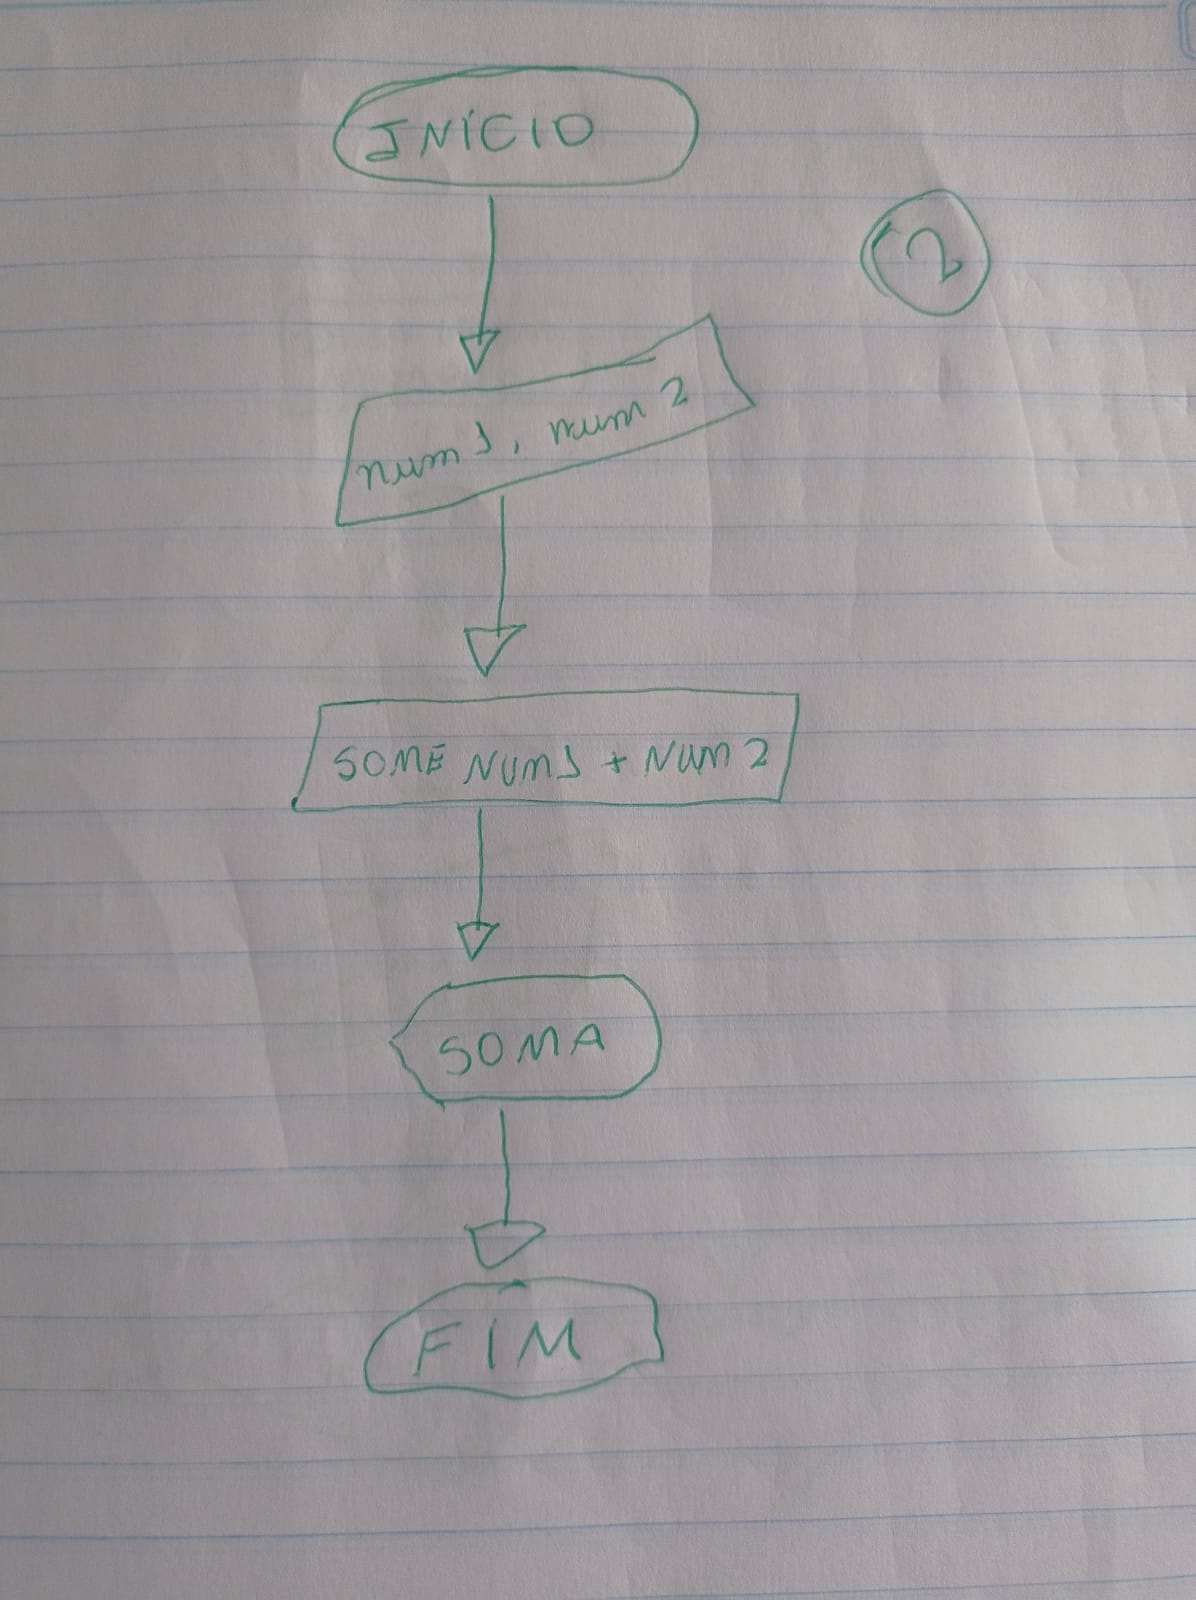 INÍCIO
2
num 1, num 2
SOME NUM1 + NUM 2
SOMA
FIM